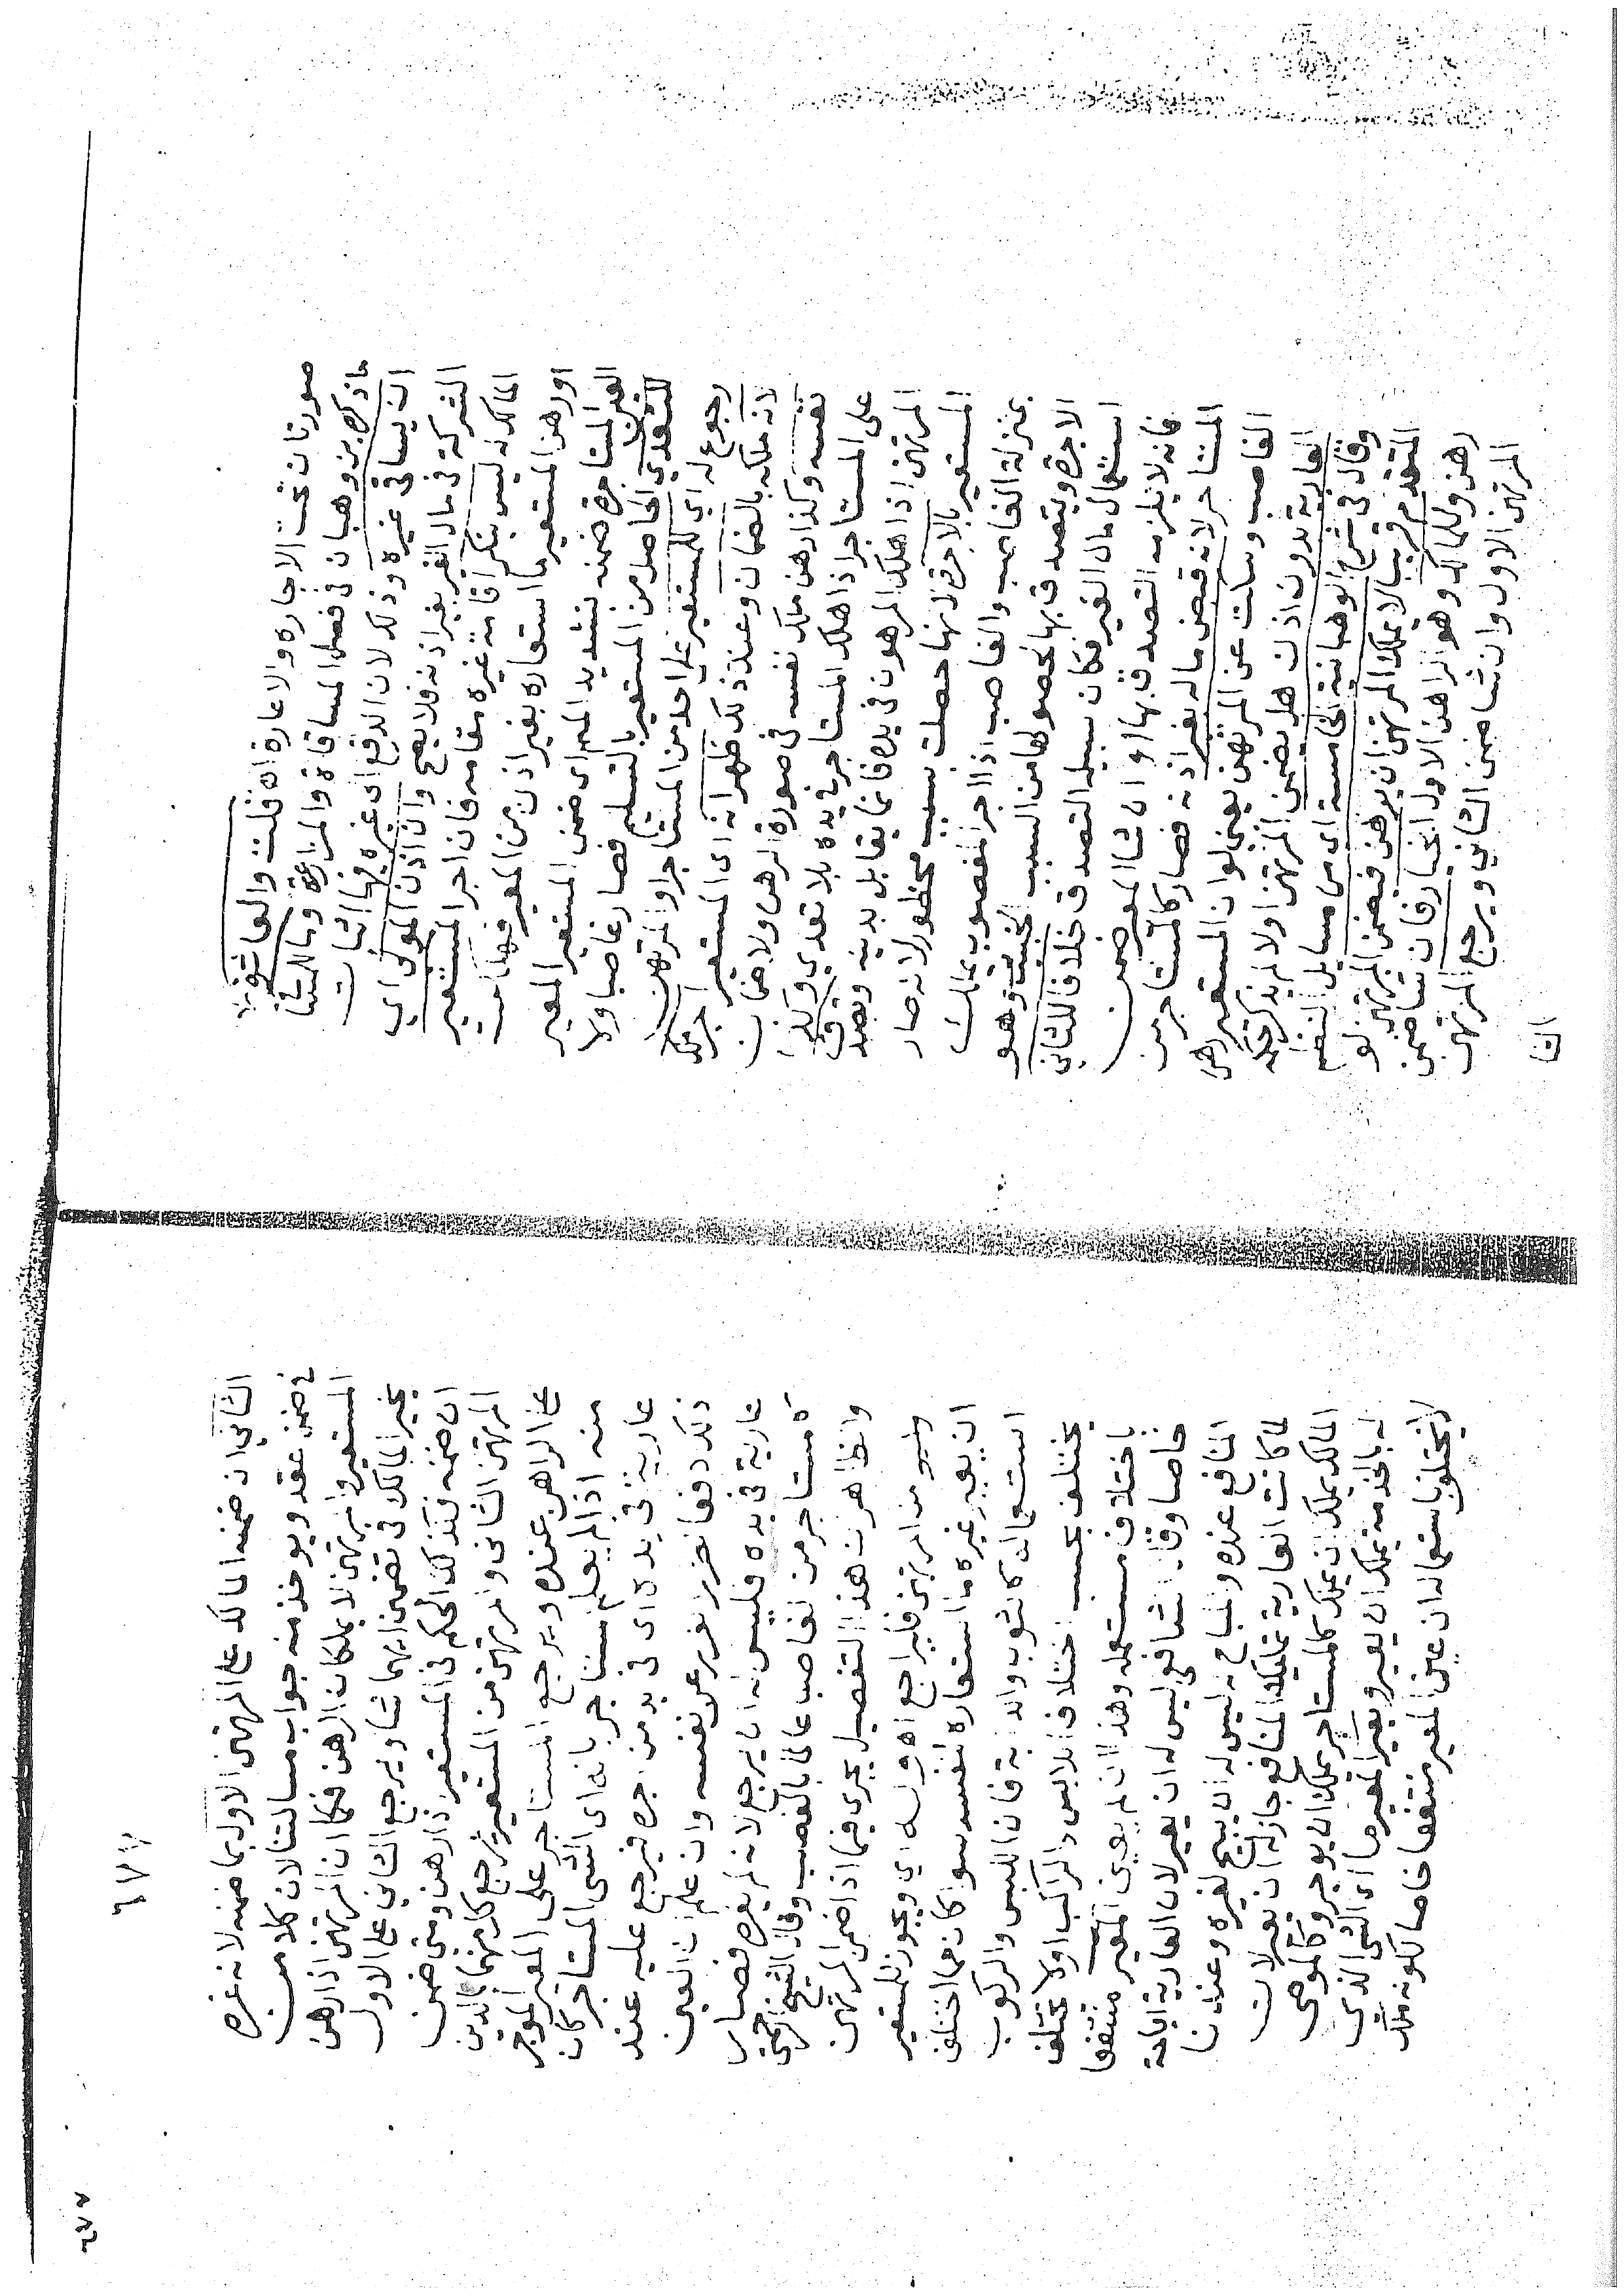 صورتان تحت الاجاره والاعارة اه قلت والعاشرة
ما ذكره بن وهبان في فصل المساقاة والمزارعة وما للمسا
ان يساقي غيره وذلك لان الدفع الى غيره فيها اثبات
الشركة في مال الغير بغير اذنه فلا يصح وان اذن المولى اي
المالك له ليس ينكر اقامة غيره مقامه فان اجر المستعير
او رهن المستعير ما استعاره بغير اذن من المعير فهلكت
العين المستاجرة ضمنه بتشديد الميم اى ضمن المستعير المعير
للتعدي الحاصل من المستعير بالتسليم فصار غاصبا ولا
رجوع له اي للمستعير على احد من المستاجر او المرتهن
لانه ملكه بالضمان وعند ذلك ظهر انه اى المستعير اجر ملك
نفسه وكذا رهن ملك نفسه في صورة الرهن ولا ضمان
على المستاجر اذا هلك المستاجر في يده بلا تعدي وكذا
المرتهن اذا هلك المرهون في يده فانما يقابل بدينه ويتصدق
المستعير بالاجرة لانها حصلت بسبب محظور لانه صار
بمنزلة الغاصب والغاصب اذا اجر المغصوب يملك
الاجرة ويتصدق بها لحصولها من السبب الخبيث وهو
استعمال مال الغير فكان سبيله التصدق خلافا للثاني
فانه لا يلزمه التصدق بها او ان شا المعير ضمن
المستاجر لانه قبض ماله بغير اذنه فصار كالمستاجر من
الغاصب وسكت عن المرتهن يعنى لو ان المستعير رهن
العارية بدون اذن هل يضمن المرتهن او لا لم يذكر حكمه
وقال في شرح الوهبانية الخامسة اى من مسايل النظم
المتقدم قريبا لا يملك المرتهن ان يرهن فيضمن المرتهن لو
رهن وللمالك وهو الراهن الاول الخيار فان شا ضمن
المرتهن الاول وان شا ضمن الثاني ويرجع المرتهن
الثا
الثاني ان ضمنه المالك على المرتهن الاول بما ضمنه لانه غره
في ضمن عقد ويوخذ منه جواب مسالتنا لان كلا من
المستعير والمرتهن لا يملكان الرهن فكما ان المرتهن اذا رهن
يخير المالك في تضمين ايهما شا ويرجع الثاني على الاول
ان ضمنه فكذلك الحكم في المستعير اذا رهن ومتى ضمن
المرتهن الثاني والمرتهن من المستعير يرجع كل منهما بالدين
على الراهن عنده ويرجع المستاجر على المعير الموجر
منه اذا لم يعلم المستاجر بانه اى الشى المستاجر كان
عارية في يده اى في يد من اجره فيرجع عليه عند
ذلك دفعا لضرر الغرر عن نفسه وان علم ان العين
عارية في يده فليس له ان يرجع لانه لم يغره فصار
كالمستاجر من الغاصب عالما بالغصب وقال الشيخ الرحمتي
والظاهر ان هذا التفصيل يجرى فيما اذا ضمن المرتهن
من المرتهن فليراجع اه وله اي ويجوز للمستعير
ان يعير غيره ما استعاره لنفسه سوا كان مما اختلف
استعماله كالثوب والدابة فان اللبس والركوب
يختلف بحسب اختلاف اللابس والراكب اولا يختلف
باختلاف مستعمله وهذا ان لم يعين المعير منتفعا
خاصا وقال الشافعي ليس له ان يعير لان العارية اباحة
المنافع عنده والمباح له ليس له ان يبيح لغيره وعندنا
لما كانت العارية تمليك المنافع جاز له ان يعير لان
المالك يملك ان يملك كالمستاجر يملك ان يوجر وكالموصى
له بالخدمة يملك ان يعير ويعير المعير ما اى الشى الذى
لا يختلف باستعماله ان عين المعير منتفعا خاصا لكونه ملك